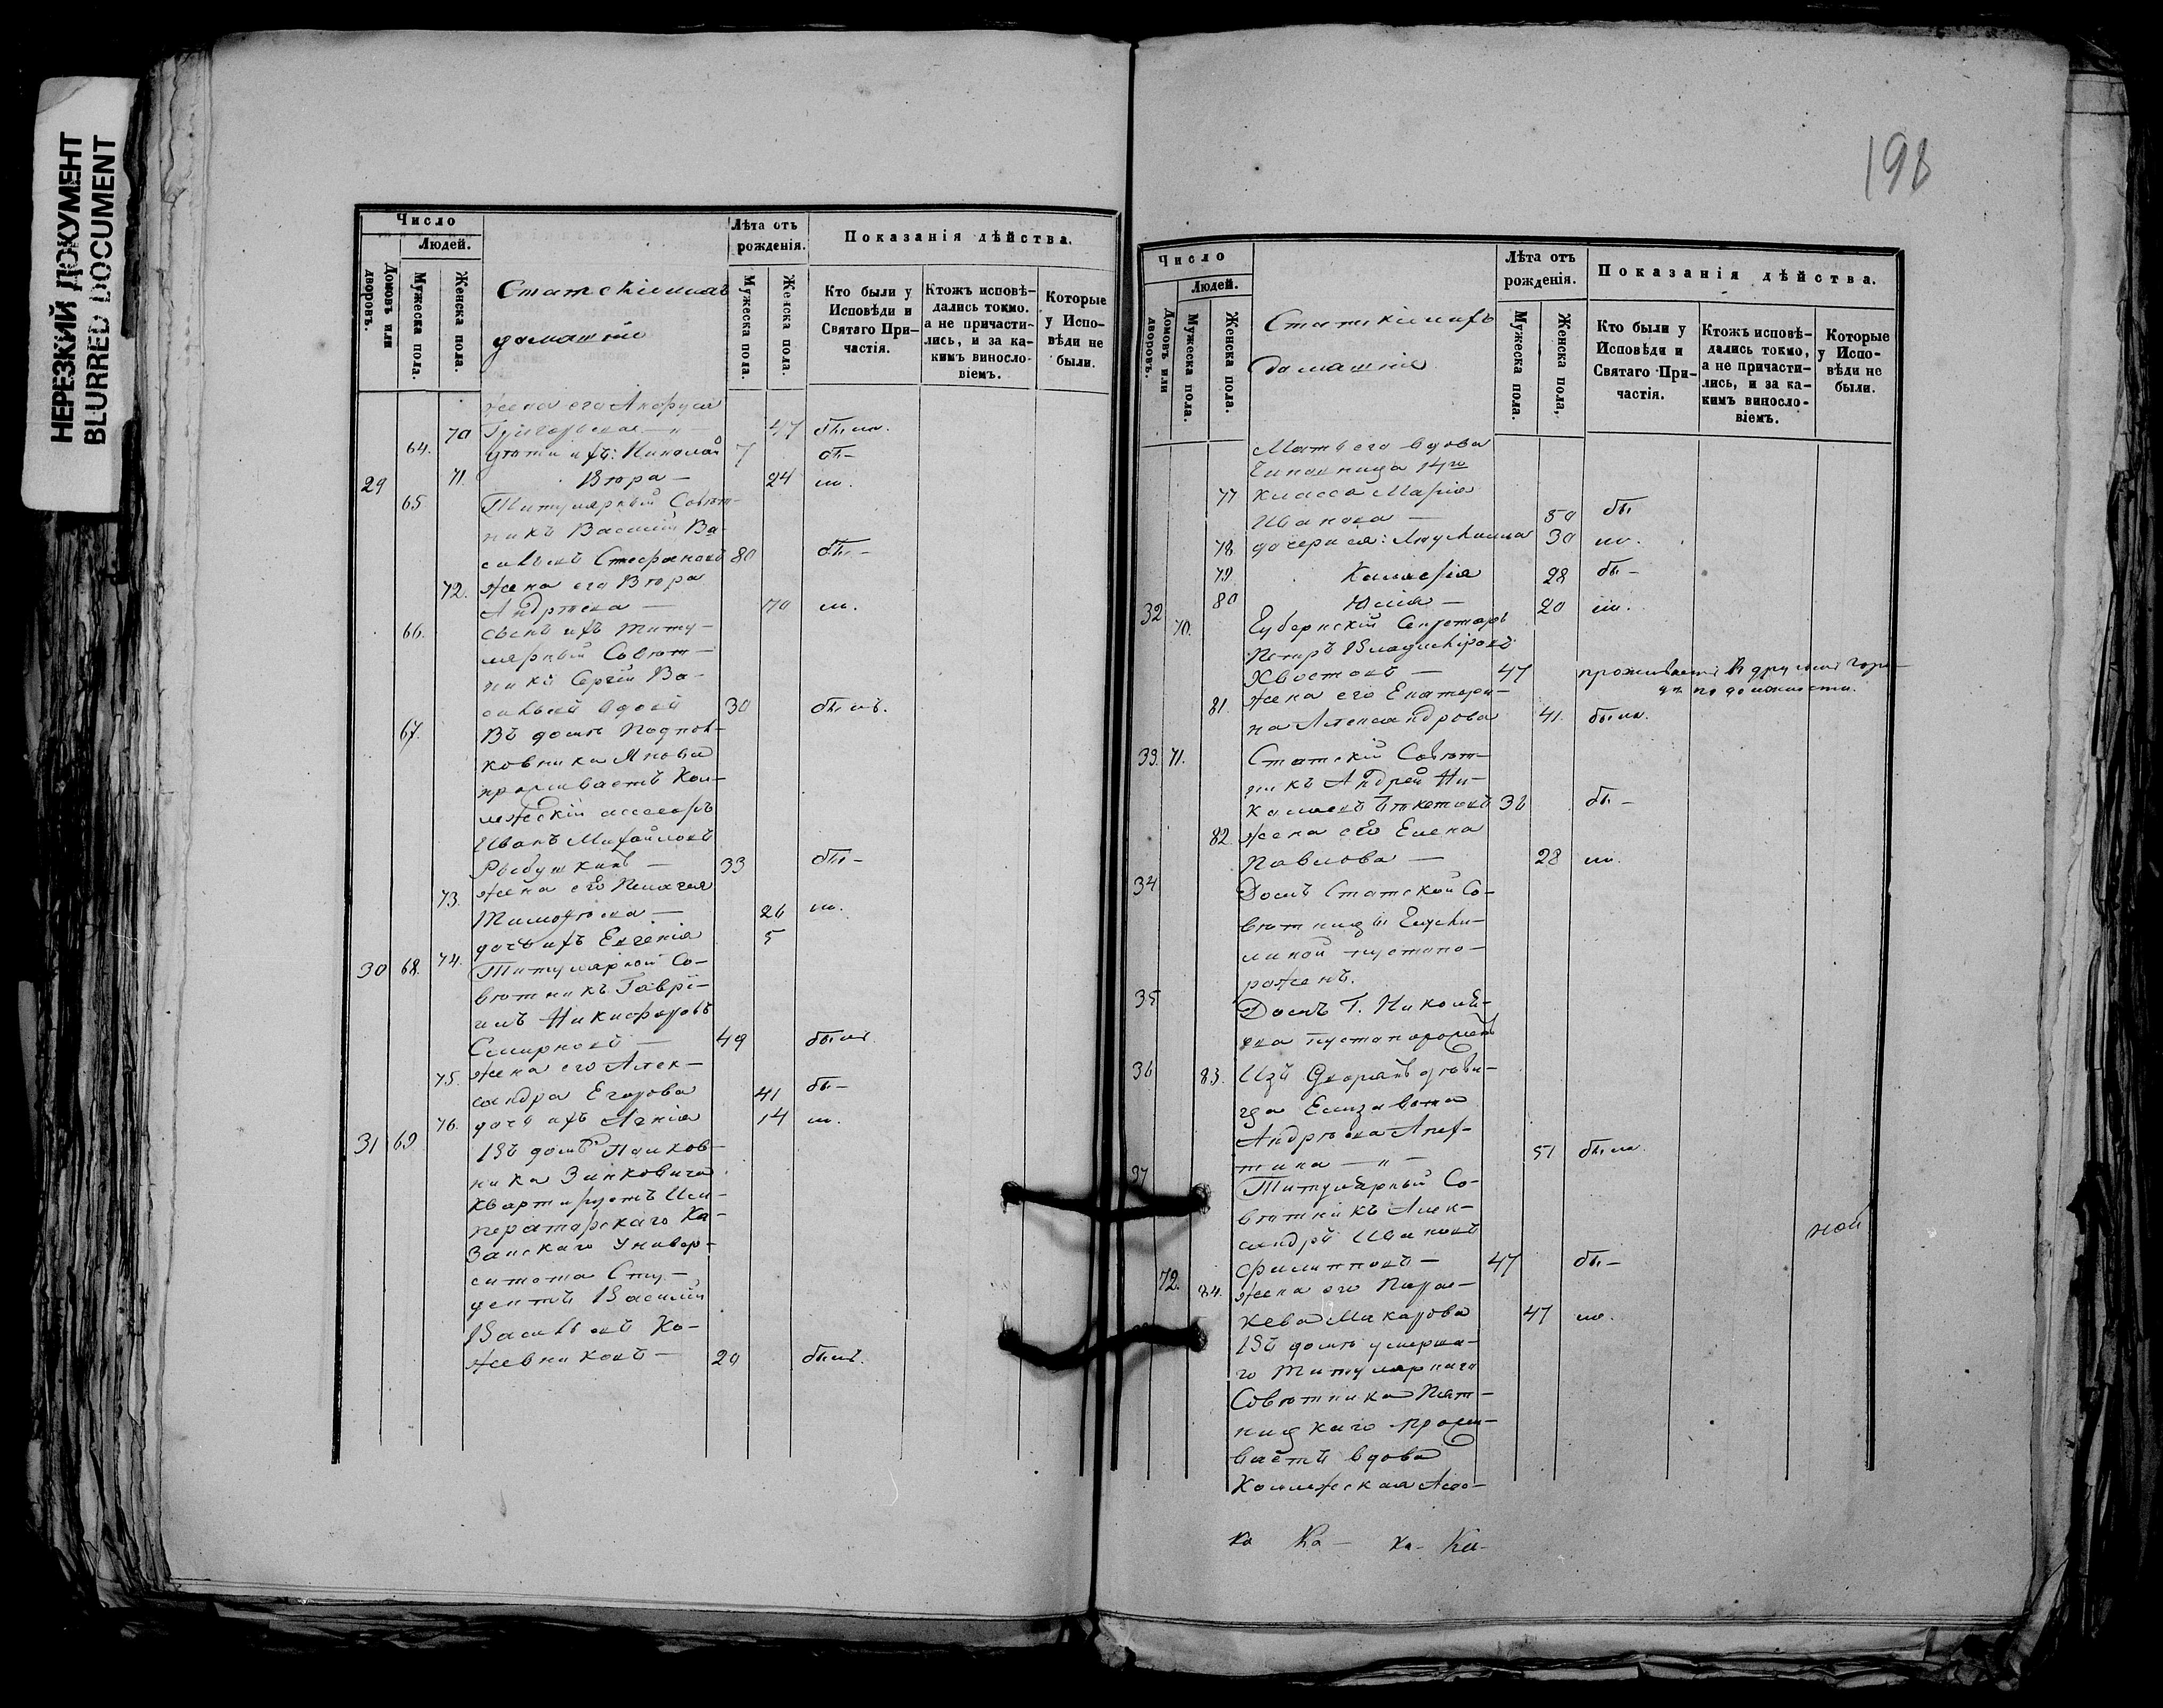 НЕРЕЗКИЙ ДОКУМЕНТ
BLURRED DOCUMENT
Число
Людей.
Домовъ или дворовъ.
Мужеска пола.
Женска пола.
Статскіи и ихъ
домашніе
Лѣта отъ рожденія.
Мужеска пола.
Женска пола.
Показанія дѣйства.
Кто были у Исповѣди и Святаго Причастія.
Ктожъ исповѣдались токмо, а не причастились, и за какимъ винословіемъ.
Которые у Исповѣди не были.
жена его
70 47 были.
64. дѣти ихъ: Николай 7 бы-
29 71. Вѣра — 24 ли.
65 Титулярный Совѣт-
никъ Василій Ва-
сильевъ Стефановъ 80 бы-
72. жена его Вѣра
Андреева — 70 ли.
66. сынъ ихъ титу-
лярный Совѣт-
никъ Сергій Ва-
сильевъ вдовъ 30 былъ.
67. Въ домѣ Подпол-
ковника Янова
проживаетъ Кол-
лежскій ассесоръ
Иванъ Михайловъ
Рыбушкинъ — 33 бы-
73. жена его Пелагея
Тимофеева — 26 ли.
74. дочь ихъ Евгенія 5
30 68. Титулярный Со-
вѣтникъ Гаврі-
илъ Никифоровъ
Смирновъ — 49 былъ.
75. жена его Алек-
сандра Егорова 41 бы-
76. дочь ихъ Агнія 14 ли.
31 69 Въ домѣ Полков-
ника Зинковича
квартируетъ Им-
ператорскаго Ка-
занскаго Универ-
ситета Сту-
дентъ Василій
Васильевъ Ко-
жевниковъ — 20 былъ.
198
Число
Людей.
Домовъ или дворовъ.
Мужеска пола.
Женска пола.
Статскіи и ихъ
домашніе
Лѣта отъ рожденія.
Мужеска пола.
Женска пола,
Показанія дѣйства.
Кто были у Исповѣди и Святаго Причастія.
Ктожъ исповѣдались токмо, а не причастились, и за какимъ винословіемъ.
Которые у Исповѣди не были.
Мать его вдова
Чиновница 14го
77 класса Марія
Иванова — 50 бы
78. дочери ея: Людмилла 30 ли.
79. Калисѳія 28 бы-
80 Юлія — 20 ли.
32 70. Губернскій Секретарь
Петръ Владиміровъ
Хвостовъ — 47 проживаетъ въ другомъ горо-
дѣ по должности.
81. жена его Екатери-
на Александрова 41. была.
33. 71. Статскій Совѣт-
никъ Андрей Ни-
колаевъ Бекетовъ 36 бы-
82. жена его Елена
Павлова — 28 ли.
34 Домъ Статской Со-
вѣтницы
пустопо-
роженъ.
35 Домъ Г.
пустопороженъ
36 83. Изъ дворянъ дѣви-
ца Елизавета
Андреева Апех-
тина — " — 51 была.
37 Титулярный Со-
вѣтникъ Алек-
сандръ Ивановъ
Филипповъ — 47 бы-
72. 84. жена его Парас-
кева Макарова 47 ли.
Въ домѣ умерша-
го Титулярнаго
Совѣтника Пят-
ницкаго прожи-
ваетъ вдова
Коллежская Асес-
ной
Ка Ка- Ка- Ка-